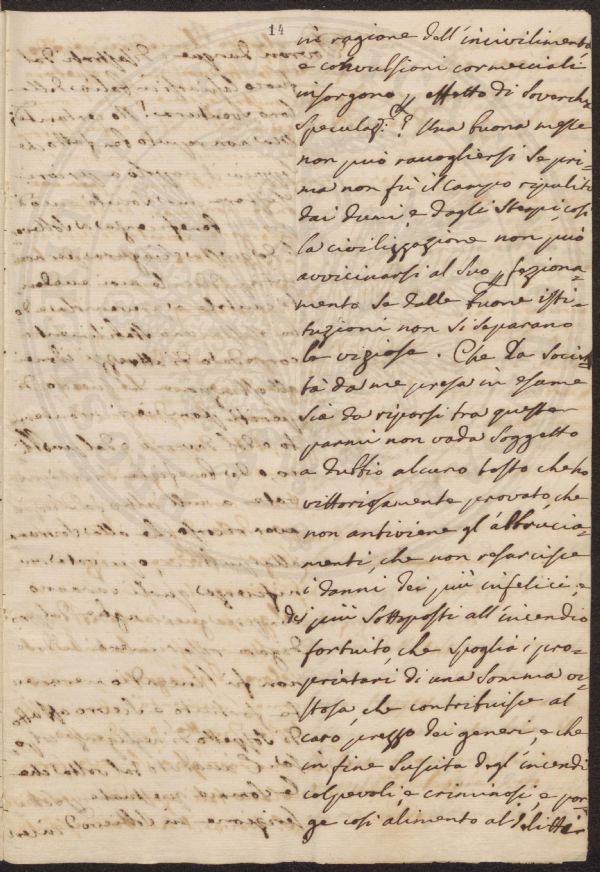 14
in ragione dell'incivilimento
e convulsioni commerciali
insorgono p effetto di soverchia
speculaz:e? Una buona messe
non può raccogliersi se pri-
ma non fù il campo ripulito
dai dumi, e dagli sterpi, così
la civilizzazione non può
avvicinarsi al suo pfeziona-
mento se dalle buone isti-
tuzioni non si separano
le viziose. Che la Socie-
tà da me presa in esame
sia da riporsi tra queste
parmi non vada soggetto
a dubbio alcuno tosto che ho
vittoriosamente provato, che
non antiviene gl'abbrucia-
menti, che non resarcisce
i danni dei più infelici, e
dei più sottoposti all'incendio
fortuito, che spoglia i pro-
prietari di una somma vi-
stosa, che contribuisce al
caro prezzo dei generi, e che
in fine suscita degl'incendi
colpevoli, e criminosi, e por-
ge così alimento al